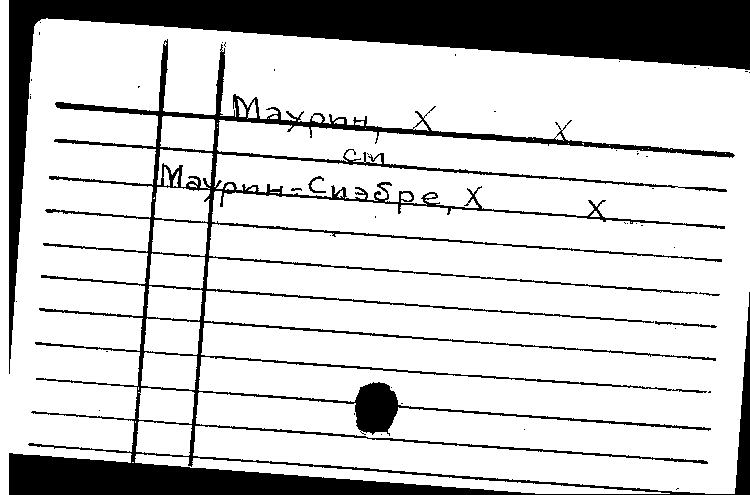 Маурин, X X
см
Маурин-Сиэбре, X X